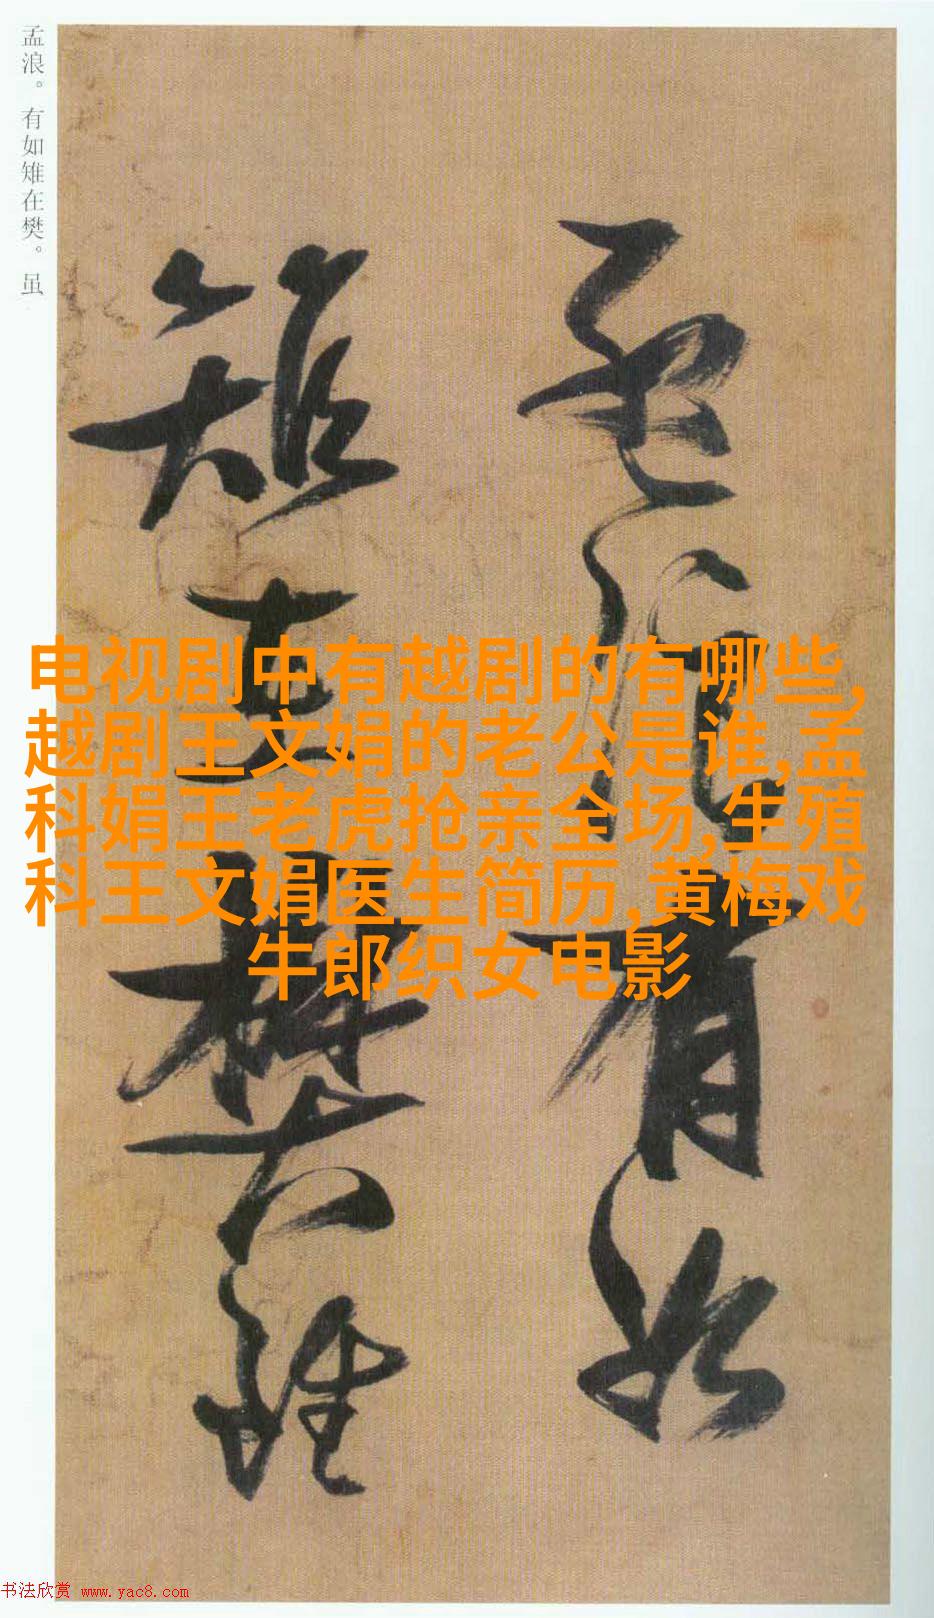 孟浪。有如雉在樊。虽
孟浪有如
雉在樊虽
电视剧中有越剧的有哪些,
越剧王文娟的老公是谁,孟
科娟王老虎抢亲全场,生殖
科王文娟医生简历,黄梅戏
牛郎织女电影
书法欣赏 www.yac8.com